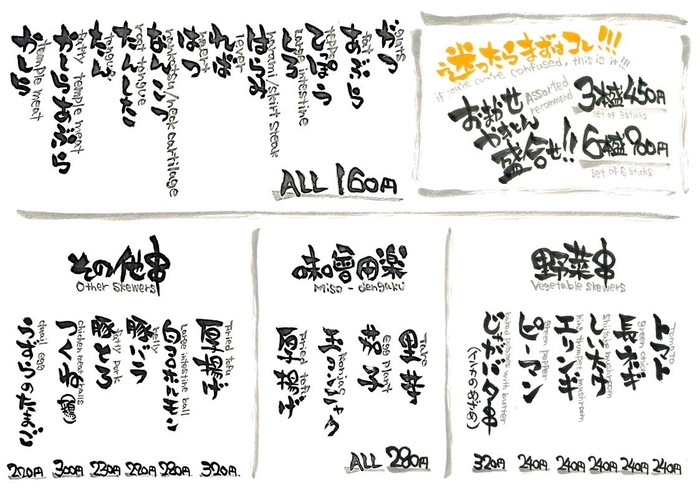 迷ったらまずはコレ!!!
if you're confused, this is it!!!
おまかせ
やきとん
盛合せ!!
Assorted
recommend
3本盛450円
set of 3 sticks
6本盛900円
set of 6 sticks
ガツ
guts
あぶら
fat
てっぽう
シロ
Large intestine
ハラミ
harami/skirt steak
レバー
liver
ハツ
heart
なんこつ
nankotsu/neck cartilage
タンした
root tongue
タン
tongue
カシラあぶら
fatty temple meat
カシラ
temple meat
ALL 160円
野菜串
Vegetable Skewers
トマト
Tomato
240円
長ネギ
green onion
240円
しいたけ
Shiitake mushroom
240円
エリンギ
king trumpet mushroom
240円
ピーマン
green pepper
240円
じゃがバター串
baked potatoes with butter
320円
味噌田楽
Miso-dengaku
里芋
Taro
茄子
Egg plant
玉こんにゃく
Konjac
厚揚げ
Fried tofu
ALL 280円
その他串
Other Skewers
厚揚げ
Fried tofu
320円
Large intestine ball
280円
豚バラ
belly
280円
豚とろ
fatty pork
230円
つくね(鶏)
chicken meatballs
300円
うずらのたまご
quail egg
220円